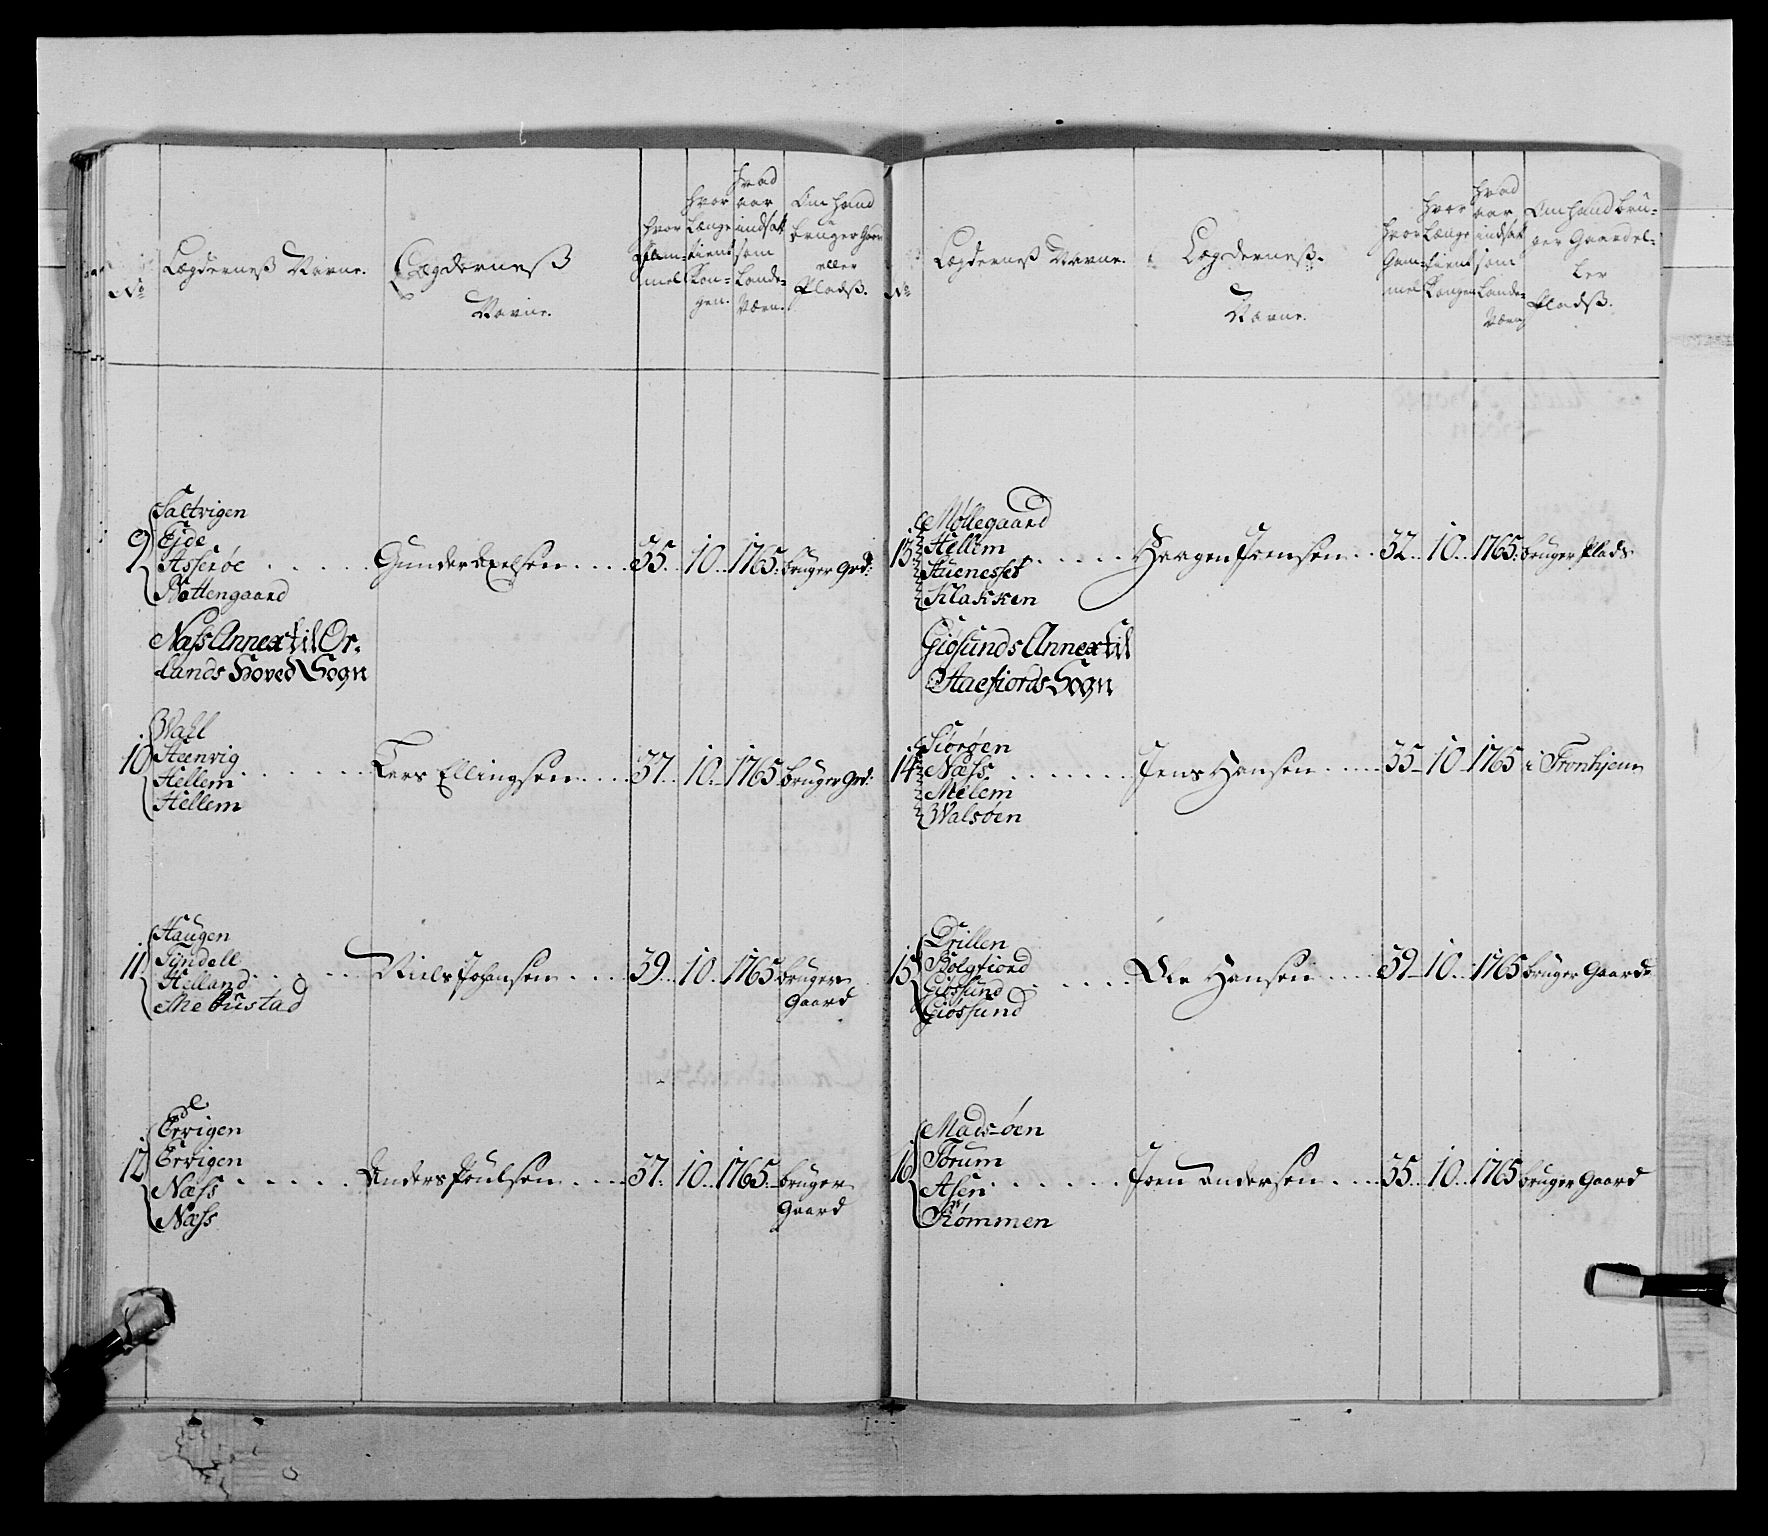 No
Lægderneß Navne.
Lægderneß
Navne.
hvor
gam-
mel
hvor
Længe
tient
Kon-
gen.
hvad
aar
indsat
som
Lande-
Værn.
Om hand
bruger Gaard
eller
Pladß.
9
Saltvigen
Eide
Asserøe
Røttengaard
Gunder Axelsen
35. 10. 1765. bruger Grd:
Næss Annex til Ør-
lands Hoved Sogn
10
Wall
Steenvig
Hellem
Hellem
Lers Ellingsen
37. 10. 1765 bruger Grd:
11
Haugen
Tÿndell
Helland
Mebustad
Niels Johansen
39. 10. 1765 bruger
Gaard
12
Ervigen
Ervigen
Næss
Næss
Anders Poulsen
37. 10. 1765. bruger
Gaard
No
Lægderneß Navne.
Lægderneß.
Navne.
hvor
Gam-
mel
hvor
Længe
tient
Kongen
hvad
aar
indsat
som
Lande-
Værn
Om hand bru-
ger Gaard el-
ler
Pladß.
13
Møllegaard
Hellem
Stuenesset
Klakken
Haagen Joensen
32. 10. 1765. bruger Plads
Giøsunds Annex til
Stadsfiords Sogn
14
Siørøen
Næss
Melem
Walsøen
Jens Hansen
35 10 1765 i Tronhjem
15
Drillen
Bolgfiord
Giøssund
Giøssund
Ole Hansen
39 10. 1765 bruger Gaard
16
Mads-øen
Torum
Asen
Strømmen
Joen Andersen
35. 10. 1765 bruger Gaard